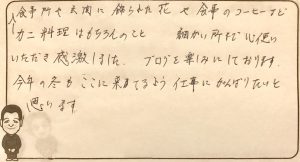 食事所や玄関に飾られた花や食事のコーヒーなど
カニ料理はもちろんのこと 細かい所まで心使い
いただき感激しました。ブログを楽しみにしております。
今年の冬もここに来れるよう仕事にがんばりたいと
思います